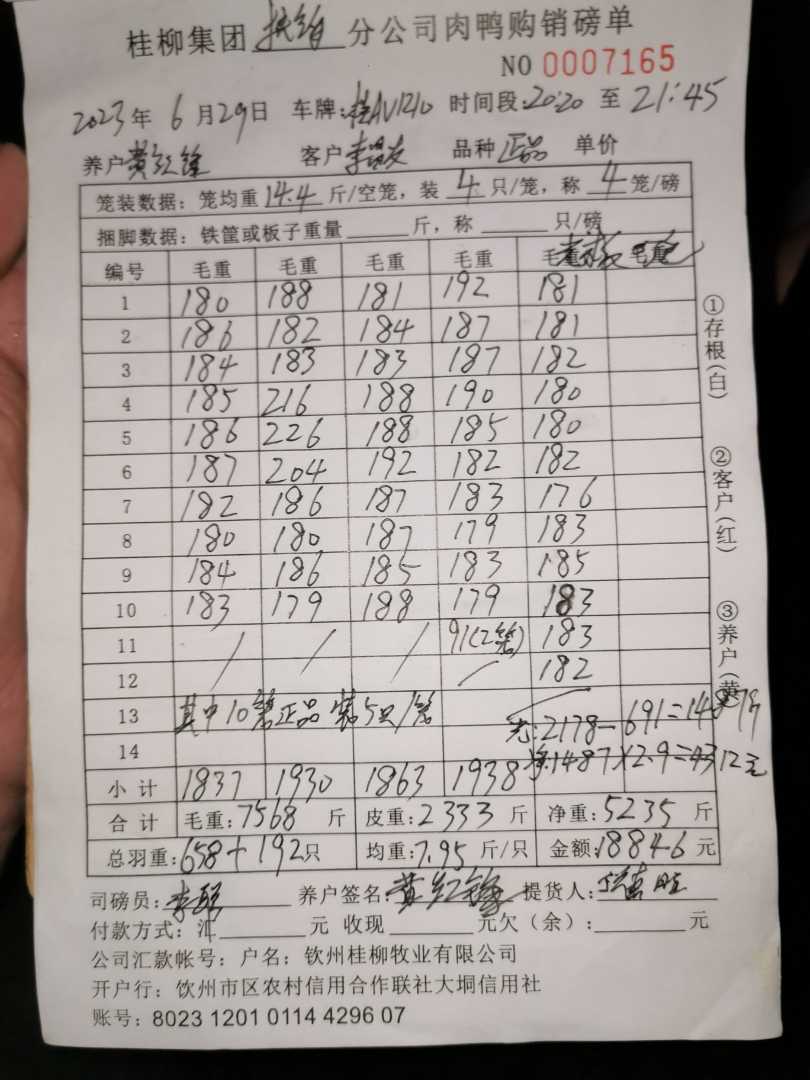 桂柳集团 扶绥 分公司肉鸭购销磅单
NO 0007165
2023年 6月29日 车牌:桂AV1210 时间段:20:20 至 21:45
养户黄红锋 客户 品种 正品 单价
笼装数据：笼均重 14.4 斤/空笼，装 4 只/笼，称 4 笼/磅
捆脚数据：铁筐或板子重量 斤，称 只/磅
编号 毛重 毛重 毛重 毛重 毛重 毛重
1 180 188 181 192 181
2 186 182 184 187 181
3 184 183 183 187 182
4 185 216 188 190 180
5 186 226 188 185 180
6 187 204 192 182 182
7 182 186 187 183 176
8 180 180 187 179 183
9 184 186 185 183 185
10 183 179 188 179 183
11 / / / 91(2笼) 183
12 / 182
13 其中10笼正品装5只/笼 毛:2178-691=1487斤
14 净:1487×2.9=4312元
小计 1837 1930 1863 1938
合计 毛重:7568 斤 皮重:2333 斤 净重:5235 斤
总羽重:658+192只 均重:7.95 斤/只 金额:18846 元
司磅员: 养户签名:黄红锋 提货人:
付款方式: 汇 元 收现 元欠（余）: 元
公司汇款帐号：户名：钦州桂柳牧业有限公司
开户行：饮州市区农村信用合作联社大垌信用社
账号：8023 1201 0114 4296 07
①存根(白)
②客户(红)
③养户(黄)